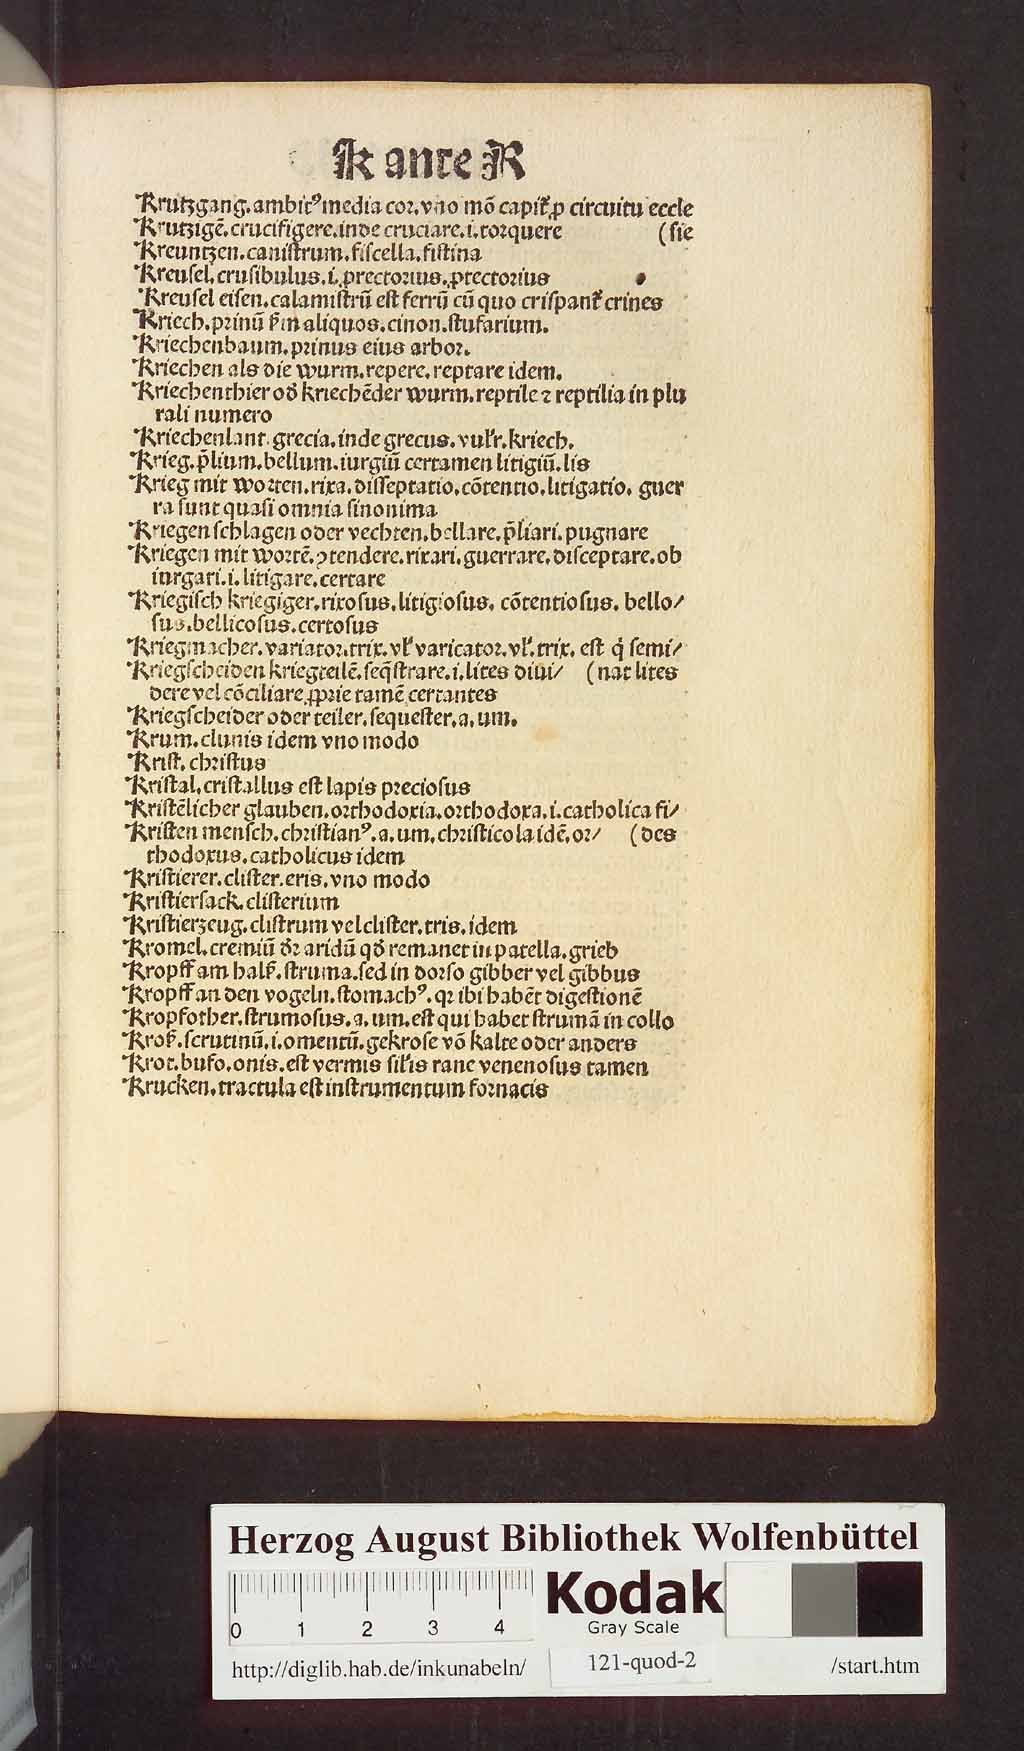 K ante R
Krutzgang.ambitꝰ media cor.vno mō capit᷑ ꝓ circuitu eccle
Krutzigē.crucifigere.inde cruciare.i.torquere (sie
Kreuntzen.canistrum.fiscella.fistina
Kreusel.crusibulus.i.prectorius.ꝓtectorius
Kreusel eisen.calamistrū est ferrū cū quo crispant᷑ crines
Kriech.prinū ẜm aliquos.cinon.stufarium.
Kriechenbaum.prinus eius arbor.
Kriechen als die wurm.repere.reptare idem.
Kriechenthier oď kriechēder wurm.reptile ⁊ reptilia in plu
rali numero
Kriechenlant.grecia.inde grecus.vulr̄.kriech.
Krieg.p̄lium.bellum.iurgiū certamen litigiū.lis
Krieg mit worten.rixa.disseptatio.cōtentio.litigatio.guer
ra sunt quasi omnia sinonima
Kriegen schlagen oder vechten.bellare.p̄liari.pugnare
Kriegen mit wortē.ꝯtendere.rixari.guerrare.disceptare.ob
iurgari.i.litigare.certare
Kriegisch kriegiger.rixosus.litigiosus.cōtentiosus.bello/
sus.bellicosus.certosus
Kriegmacher.variator.trix.vl̕ varicator.vl̕.trix.est q̇ semi/
Kriegscheiden kriegteilē.seq̄strare.i.lites diui/ (nat lites
dere vel cōciliare ꝓprie tamē certantes
Kriegscheider oder teiler.sequester.a.um.
Krum.clunis idem vno modo
Krist.christus
Kristal.cristallus est lapis preciosus
Kristēlicher glauben.orthodoxia.orthodoxa.i.catholica fi/
Kristen mensch.christianꝰ.a.um.christicola idē.or/ (des
thodoxus.catholicus idem
Kristierer.clister.eris.vno modo
Kristiersack.clisterium
Kristierzeug.clistrum vel clister.tris.idem
Kromel.cremiū ďr aridū qď remanet in patella.grieb
Kropff am halß.struma.sed in dorso gibber vel gibbus
Kropff an den vogeln.stomachꝰ.qꝛ ibi habēt digestionē
Kropfother.strumosus.a.um.est qui habet strumā in collo
Kroß.scrutinū.i.omentū.gekrose vō kalte oder anders
Krot.bufo.onis.est vermis sil̕is rane venenosus tamen
Krucken.tractula est instrumentum fornacis
Herzog August Bibliothek Wolfenbüttel
0 1 2 3 4
Kodak
Gray Scale
http://diglib.hab.de/inkunabeln/ 121-quod-2 /start.htm